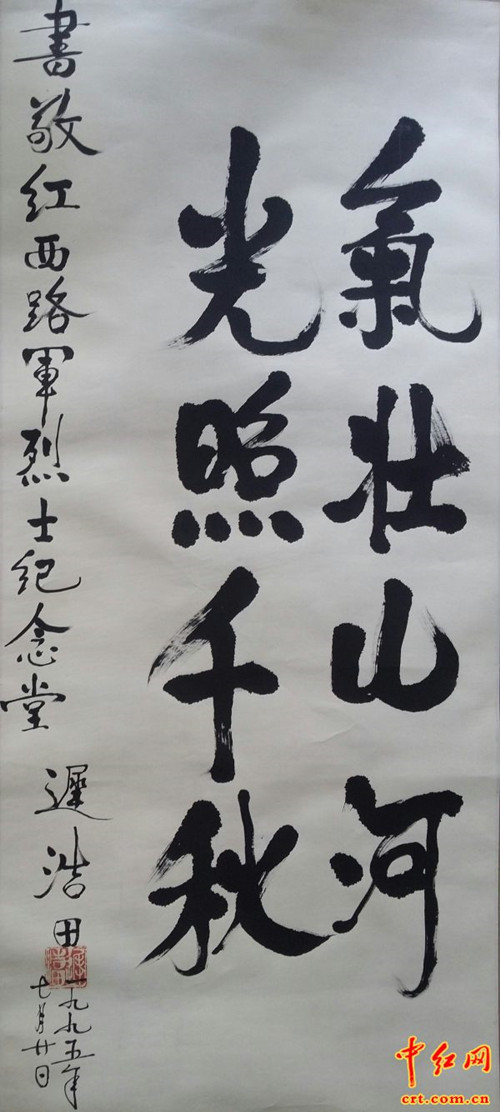 氣壯山河
光照千秋
書敬红西路軍烈士纪念堂
遲浩田
一九九五年
七月廿日
中红网
crt.com.cn